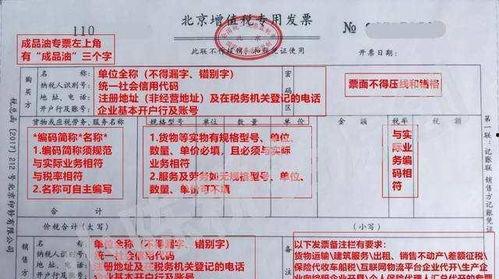 成品油专票左上角
有“成品油”三个字
110
北京增值税专用发票
№
此联不作报销、扣税凭证使用
开票日期：
购买方
名称：
纳税人识别号：
地址、电话：
开户行及账号：
单位全称（不得漏字、错别字）
统一社会信用代码
注册地址（非经营地址）及在税务机关登记的电话
企业基本开户行及账号
密码区
票面不得压线和错格
货物或应税劳务、服务名称
规格型号
单位
数量
单价
金额
税率
税额
*编码简称*名称*
1.编码简称须规范
与实际业务相符
与税率相符
2.名称可自主编写
1.货物等实物有规格型号、单位、
数量、单价必填，且必须与实际
业务相符
2.服务及劳务如无规格型号、单位、
数量、单价可不填
与实际业务编码相符
税总函〔2017〕212号北京印钞有限公司
第一联：记账联 销售方记账凭证
价税合计（大写）
（小写）
单位全称（不得漏字、错别字）
统一社会信用代码
以下发票备注栏有要求：
货物运输\建筑服务\出租、销售不动产\差额征税\
保险代收车船税\互联网物流平台企业代开\生产企